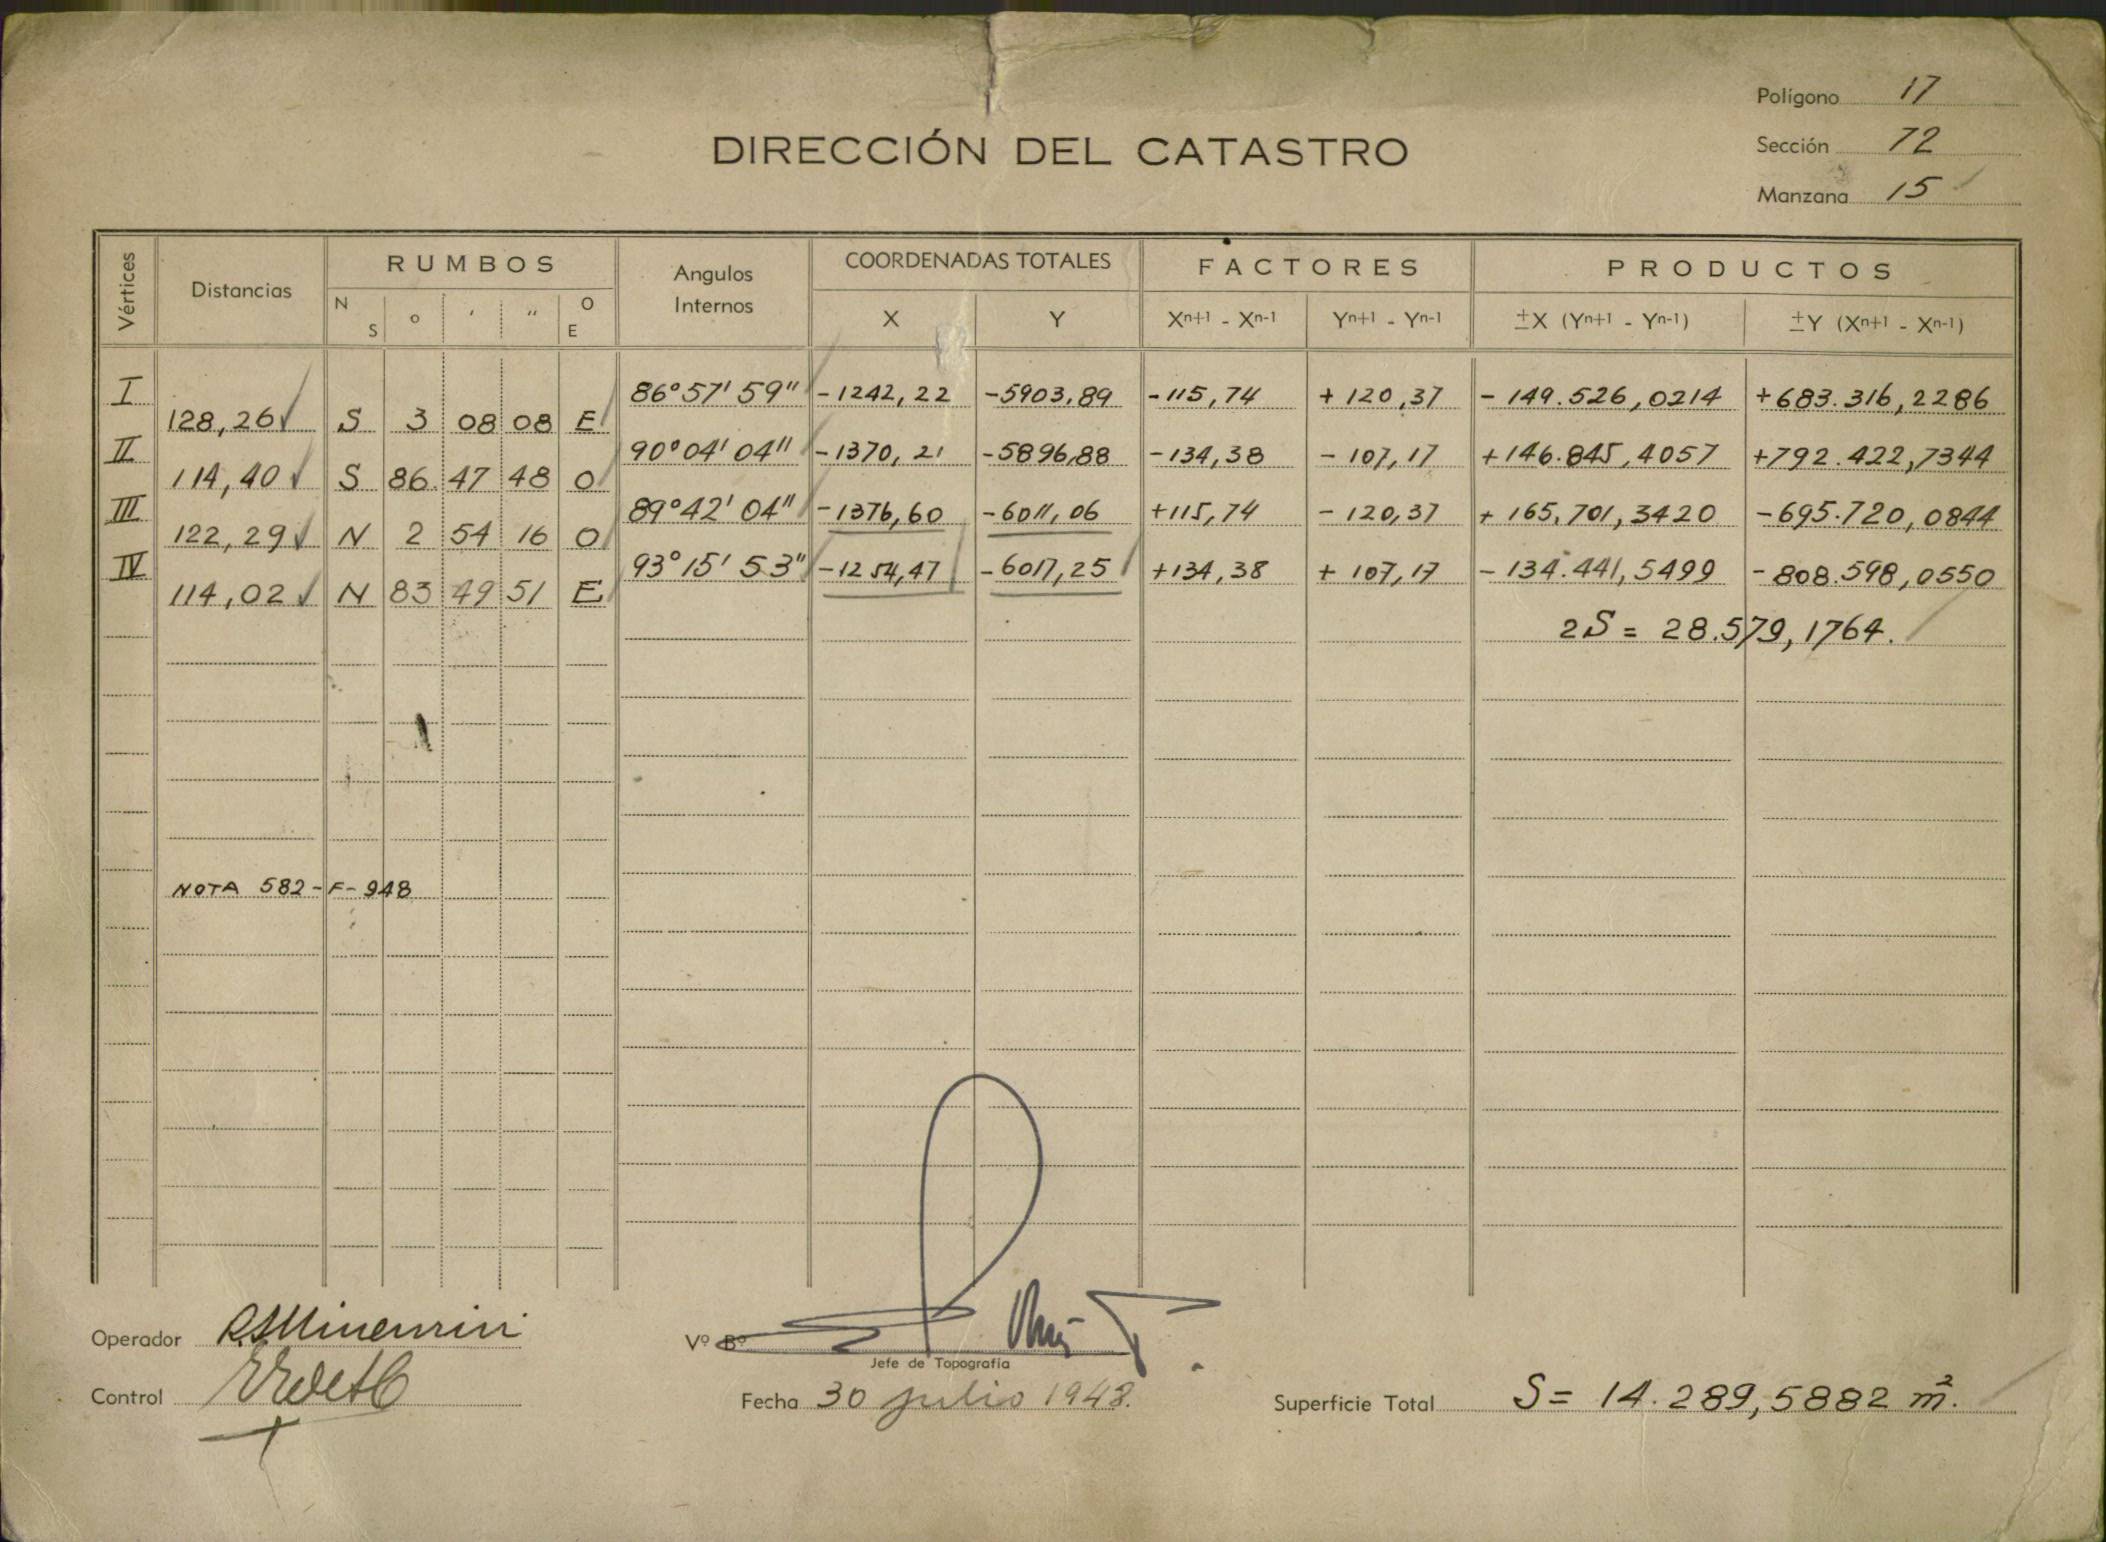 Polígono 17
DIRECCIÓN DEL CATASTRO
Sección 72
Manzana 15
Vértices Distancias RUMBOS Angulos Internos COORDENADAS TOTALES FACTORES PRODUCTOS
N S ° ' " O E X Y Xn+1 - Xn-1 Yn+1 - Yn-1 ±X (Yn+1 - Yn-1) ±Y (Xn+1 - Xn-1)
I 86°57'59" -1242,22 -5903,89 -115,74 +120,37 -149.526,0214 +683.316,2286
128,26 S 3 08 08 E
II 90°04'04" -1370,21 -5896,88 -134,38 -107,17 +146.845,4057 +792.422,7344
114,40 S 86. 47 48 O
III 89°42'04" -1376,60 -6011,06 +115,74 -120,37 +165.701,3420 -695.720,0844
122,29 N 2 54 16 O
IV 93°15'53" -1254,47 -6017,25 +134,38 +107,17 -134.441,5499 -808.598,0550
114,02 N 83 49 51 E
2S = 28.579,1764.
NOTA 582-F-948
Operador
Vº Bº
Jefe de Topografía
Control
Fecha 30 julio 1948.
Superficie Total S= 14.289,5882 m².